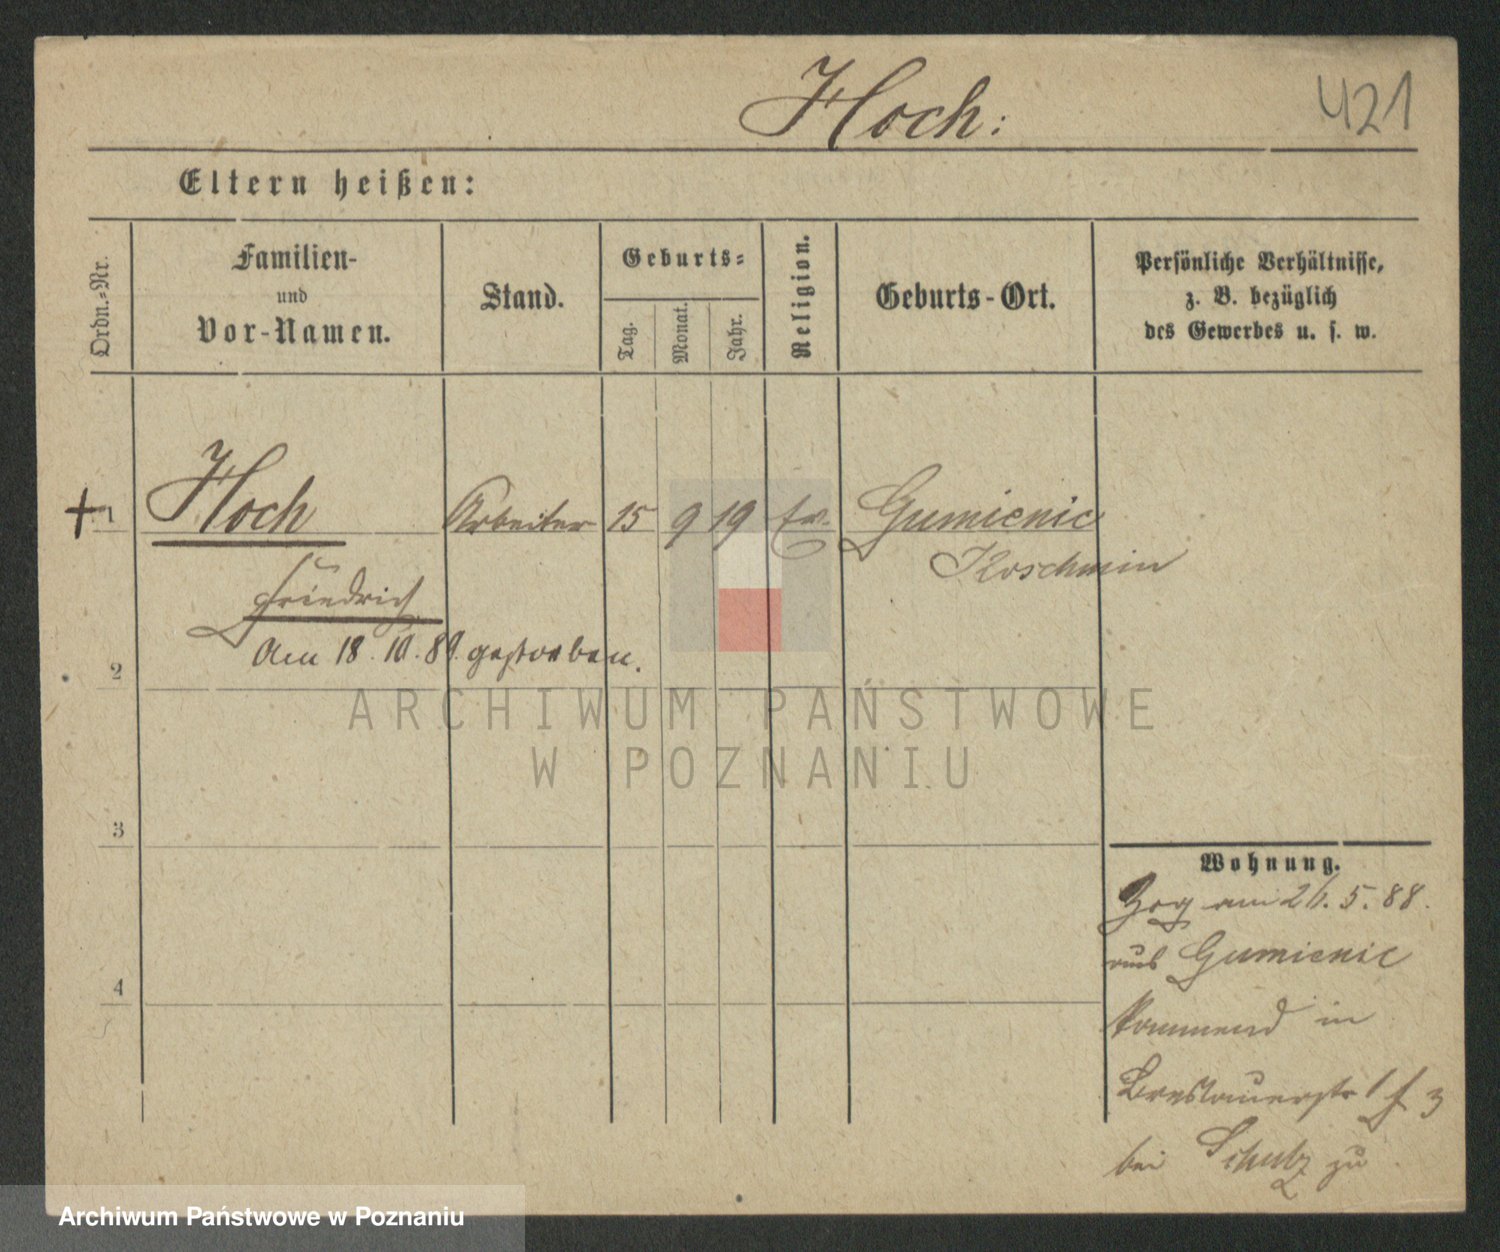 Hoch:
421
Eltern heißen:
Ordn.-Nr.
Familien-
und
Vor-Namen.
Stand.
Geburts-
Tag.
Monat.
Jahr.
Religion.
Geburts-Ort.
Persönliche Verhältnisse,
z. B. bezüglich
des Gewerbes u. s. w.
+ 1 Hoch Arbeiter 15 9 19 Ev. Gumienic
Koschmin
Friedrich
Am 18.10.89. gestorben.
2
ARCHIWUM PAŃSTWOWE
W POZNANIU
3
4
Wohnung.
Zog am 5.88.
aus Gumienic
kommend in
Breslauerstr
bei Schulz zu
Archiwum Państwowe w Poznaniu